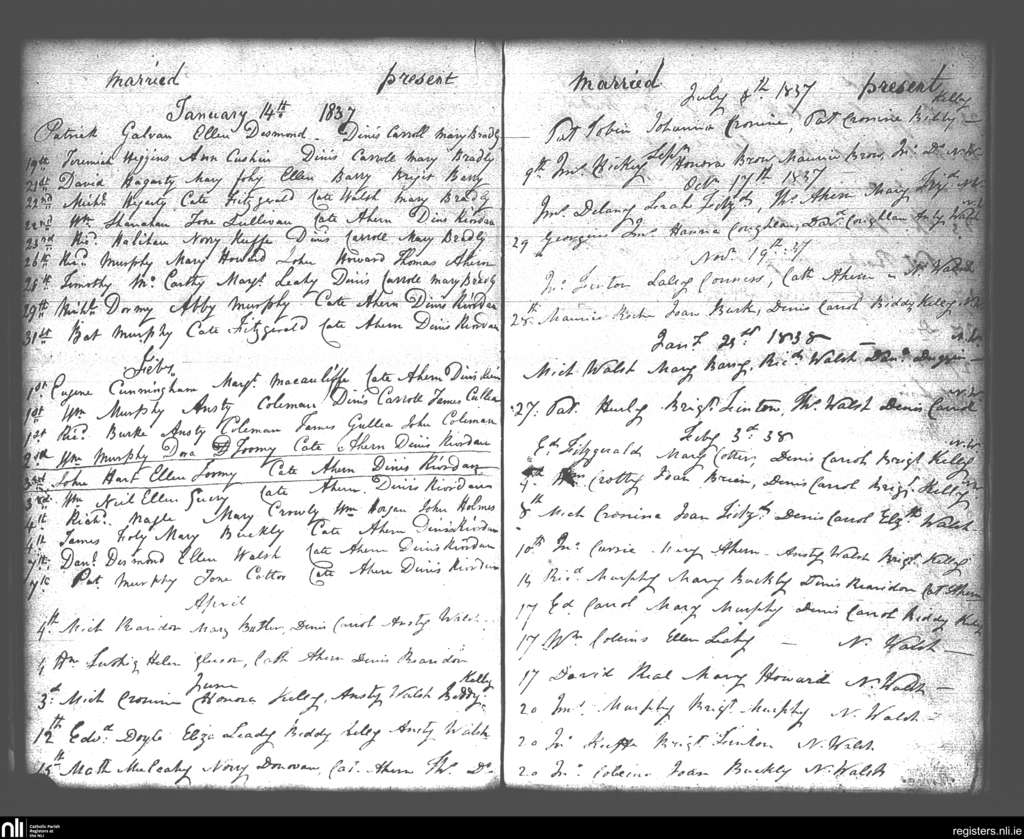 married present
January 14th 1837
Patrick Galvan Ellen Desmond Dinis Carroll Mary Bradly
19th Jeremiah Higgins Ann Cushin Dinis Carroll Mary Bradly
21st David Hagarty Mary Ellen Barry Barry
22nd Michl Hegarty Cate Fitzgerald Cate Walsh Mary Bradly
22nd Wm Shanahan Jone Sullivan Cate Ahern Dinis Riordan
23rd Ricd Halihan Norry Keeffe Dinis Carroll Mary Bradly
26th Ricd Murphy Mary Howard John Howard Thomas Ahern
28th Timothy Mc Carthy Margt Leahy Dinis Carrole Mary Bredy
29th Michl Dormy Abby Murphy Cate Ahern Dinis Riordan
31st Bat Murphy Cate Fitzgerald Cate Ahern Dinis Riordan
Feby
1st Eugene Cunningham Margt Macauliffe Cate Ahern Dinis
1st Wm Murphy Ansty Coleman Dinis Carroll James Cullea
1st Ricd Burke Ansty Coleman James Gullea John Coleman
2nd Wm Murphy Dora Toomy Cate Ahern Dinis Riordan
3rd John Hart Ellen Toomy Cate Ahern Dinis Riordan
3rd Wm Neil Ellen Cate Ahern Dinis Riordan
4th Richd Nagle Mary Crowly Wm Hogan John Holmes
4th James Foly Mary Buckly Cate Ahern Dinis Riordan
7th Danl Desmond Ellen Walsh Cate Ahern Dinis Riordan
7th Pat Murphy Jone Cotter Cate Ahern Dinis Riordan
April
4th Mich Reardon Mary Butler, Denis Carrol Ansty Walsh
Wm Helen Gleeson, Cath Ahern Denis Reardon
June Kelly
3d Mich Cronin Honora Ansty Walsh Biddy
12th Edwd Doyle Eliza Leady Biddy Ansty Walsh
15th Math Mulcahy Norry Donovan, Cat. Ahern Ths Do
married present
July 8th 1837 Kelly
Pat Tobin Johanna Cronine, Pat Cronine Bibby
Sepr
9th Jno Hickey Honora Brow Maurice Brow, Jno Do N.W.
Octr 17th 1837
Jno Delany Sarah Thos Ahern Mary N.W.
29 Jno Hanria Coughlan, Coughlan Walsh
Novr 19th 37
Jno Linton Connors, Cath Ahern N Walsh
28th Maurice Roche Joan Burk, Denis Carrol Biddy Kelly N.W.
Jany 23rd 1838
Mich Walsh Mary Barry, Ricd Walsh
27 Pat. Hurly Brigt Linton, Ths Walsh Denis Carrol
Feby 3d 38
Ed Fitzgerald Mary Cotter, Denis Carrol Brigt Kelly
4th Crotty Joan Brien, Denis Carrol Brigt Kelly
8th Mich Cronine Joan Denis Carrol Elzth Walsh
10th Jno Mary Ahern Ansty Walsh Brigt Kelly
14 Ricd Murphy Mary Buckly Denis Reardon Cat Ahern
17 Ed Carrol Mary Murphy Denis Carrol Biddy Kelly
17 Wm Collins Ellen Leahy — N. Walsh
17 David Real Mary Howard N. Walsh
20 Jno Murphy Brigt Murphy N. Walsh
20 Jno Keeffe Brigt Linton N. Walsh
20 Jno Joan Buckly N. Walsh
nli
Catholic Parish
Registers at
the NLI
registers.nli.ie